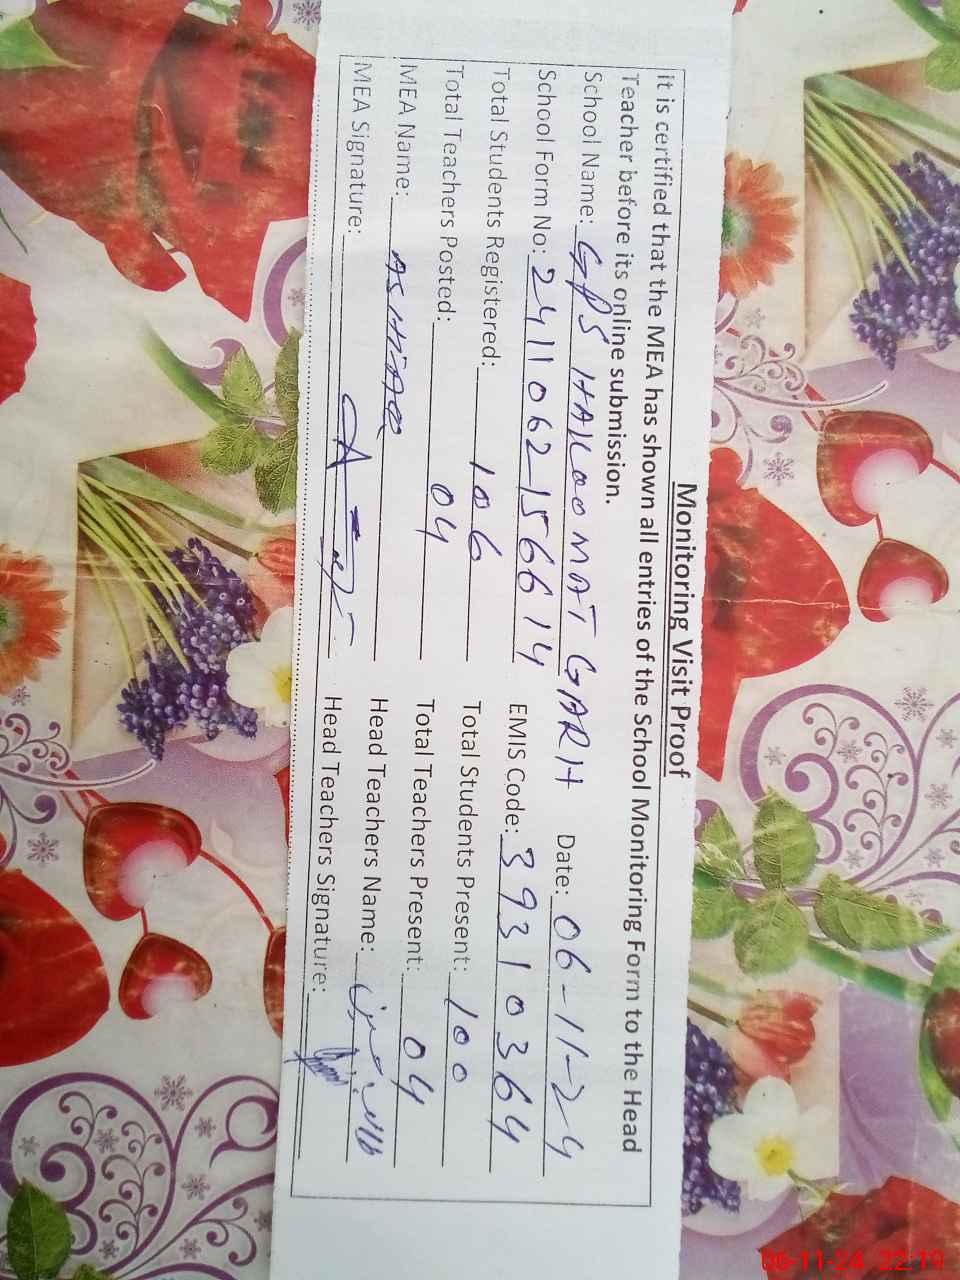 Monitoring Visit Proof
it is certified that the MEA has shown all entries of the School Monitoring Form to the Head
Teacher before its online submission.
School Name: GPS HAKOOMAT GARH Date: 06-11-24
School Form No: 24110621566 14 EMIS Code: 39310364
Total Students Registered: 106 Total Students Present: 100
Total Teachers Posted: 04 Total Teachers Present: 04
MEA Name: ASHFAQ Head Teachers Name:
MEA Signature: Head Teachers Signature:
06-11-24 22:19